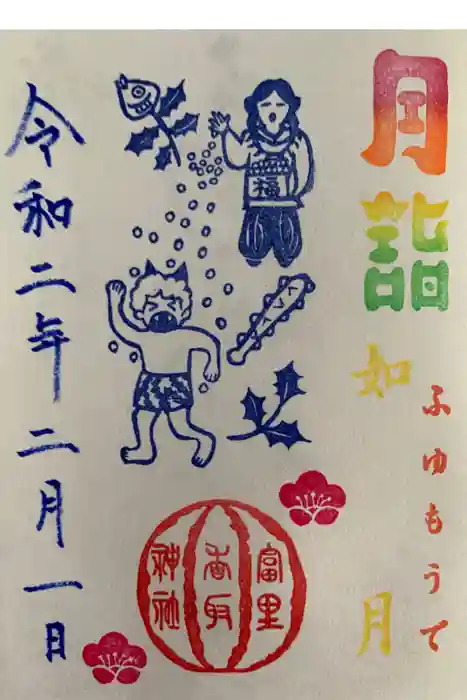 月詣
如月
ふゆもうで
福
富里
香取
神社
令和二年二月一日